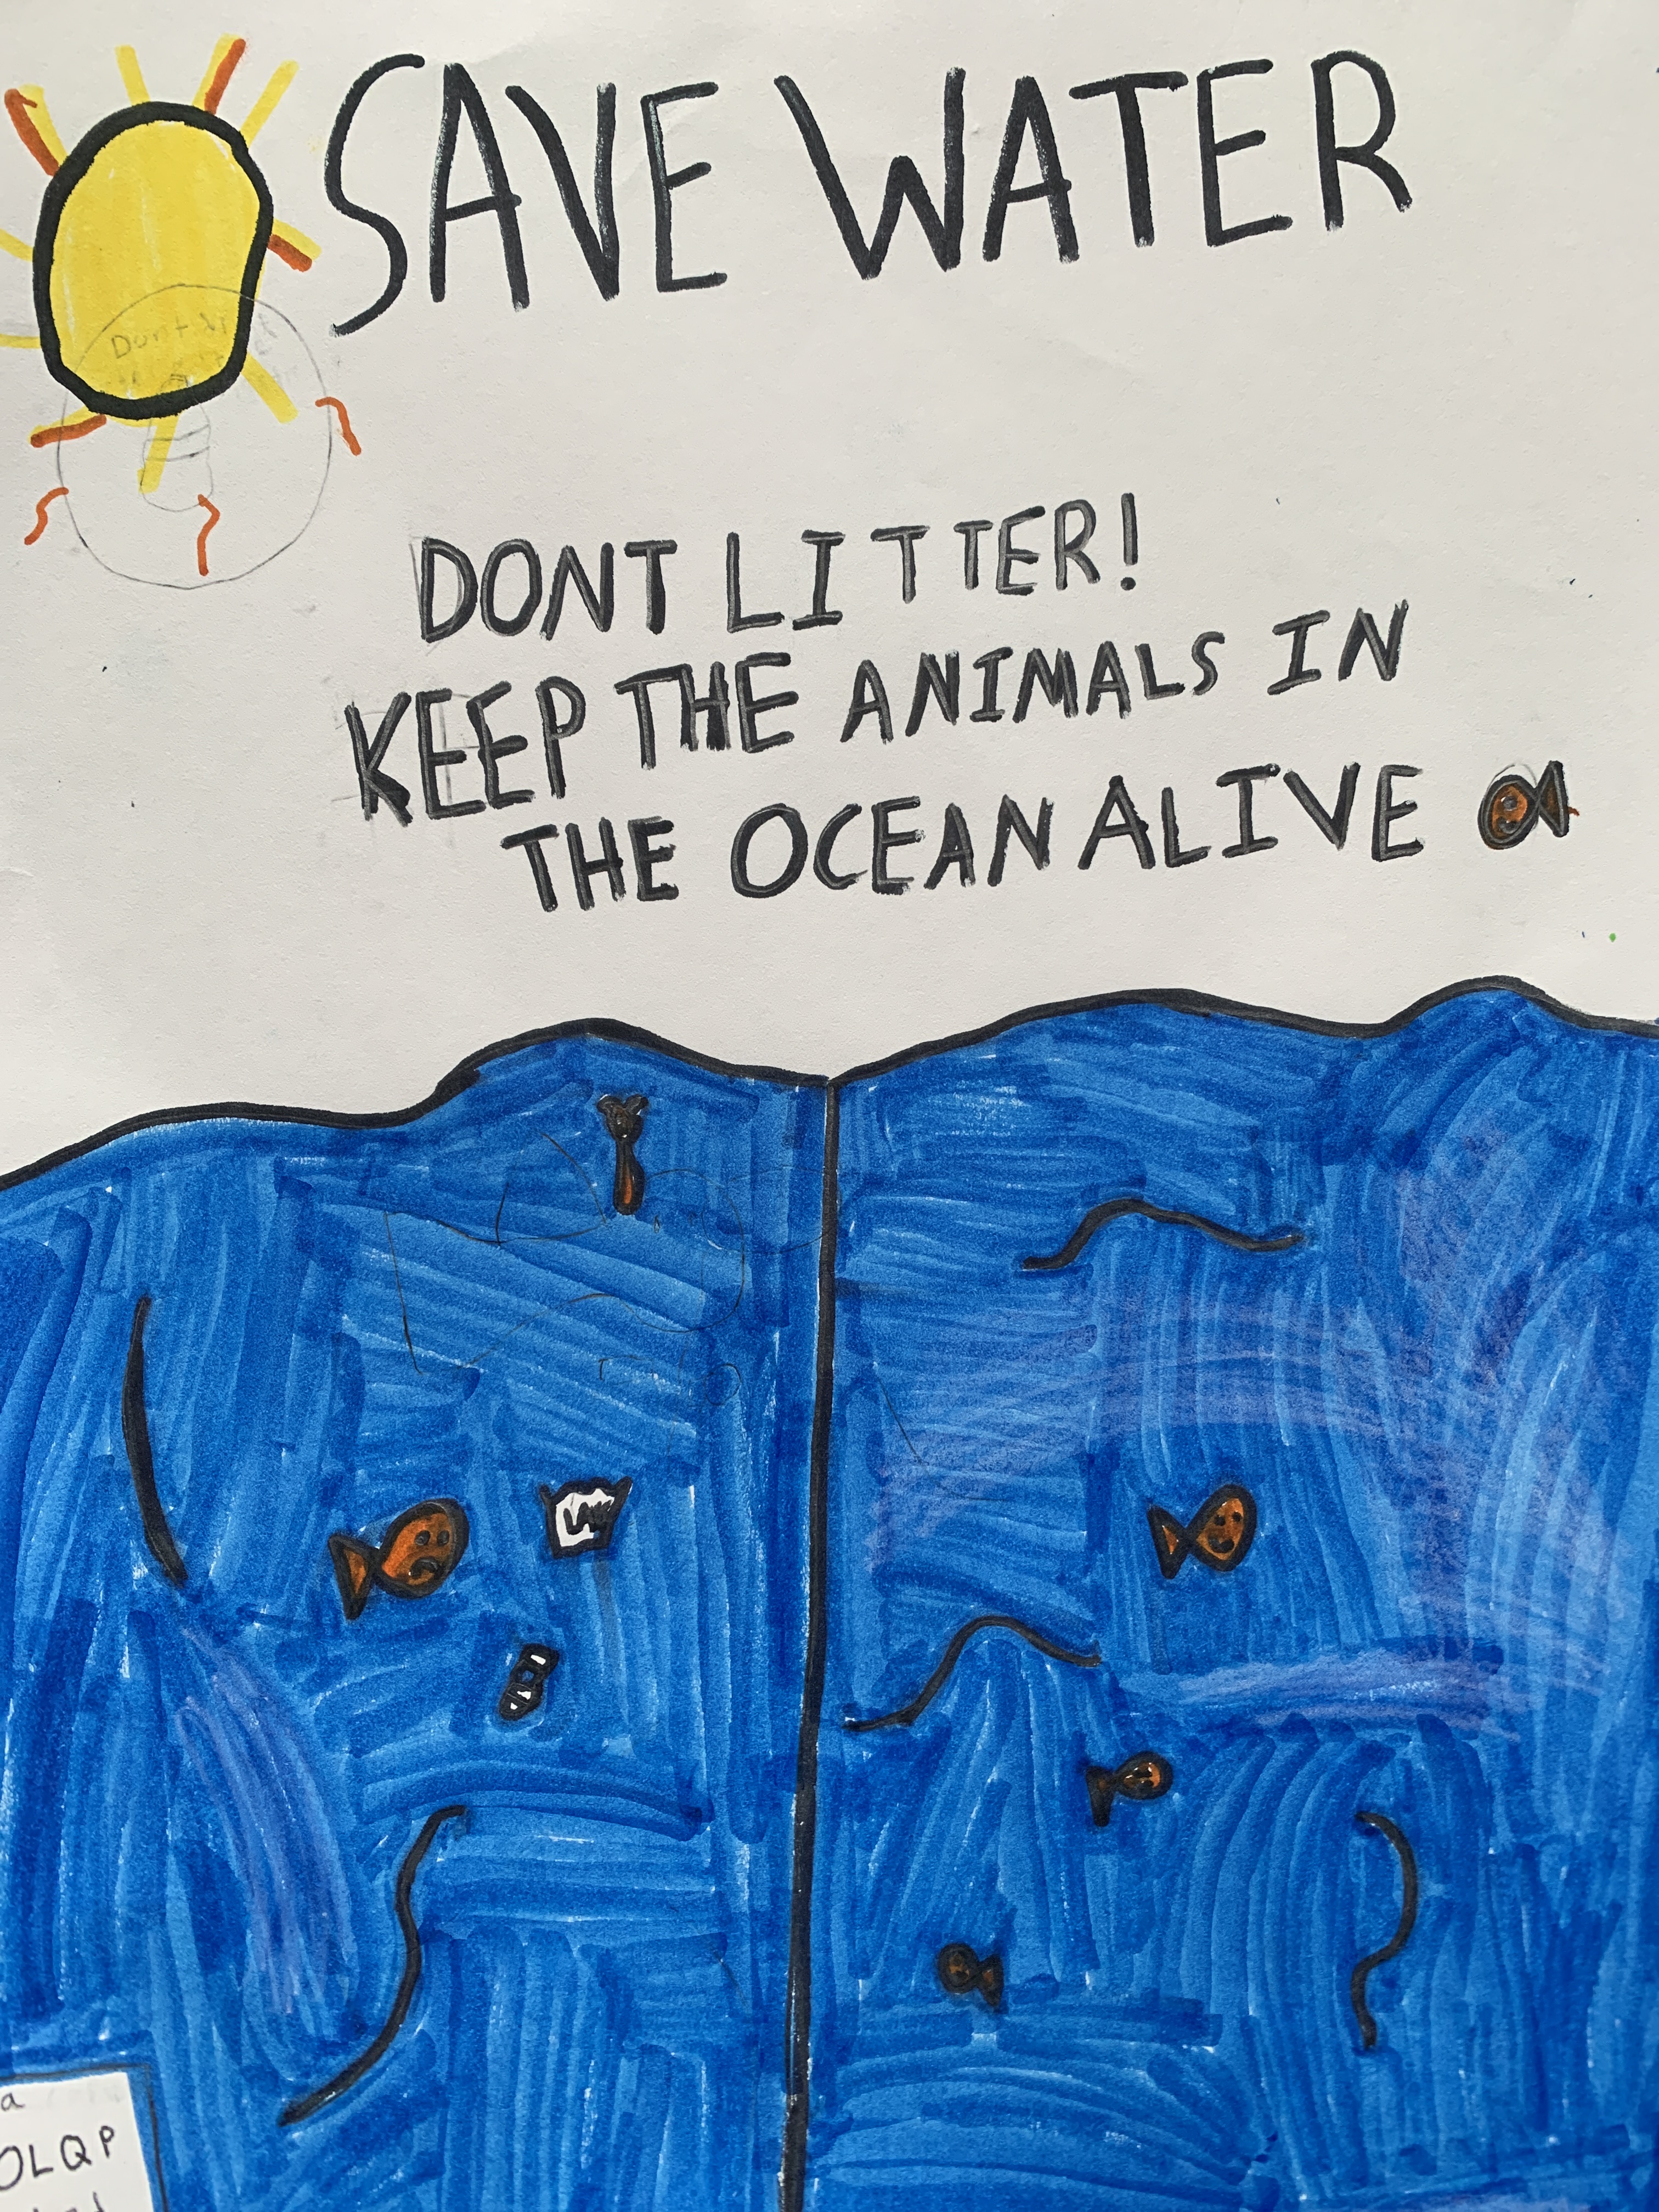 SAVE WATER
Dont
DONT LITTER!
KEEP THE ANIMALS IN
THE OCEAN ALIVE
a
OLQP